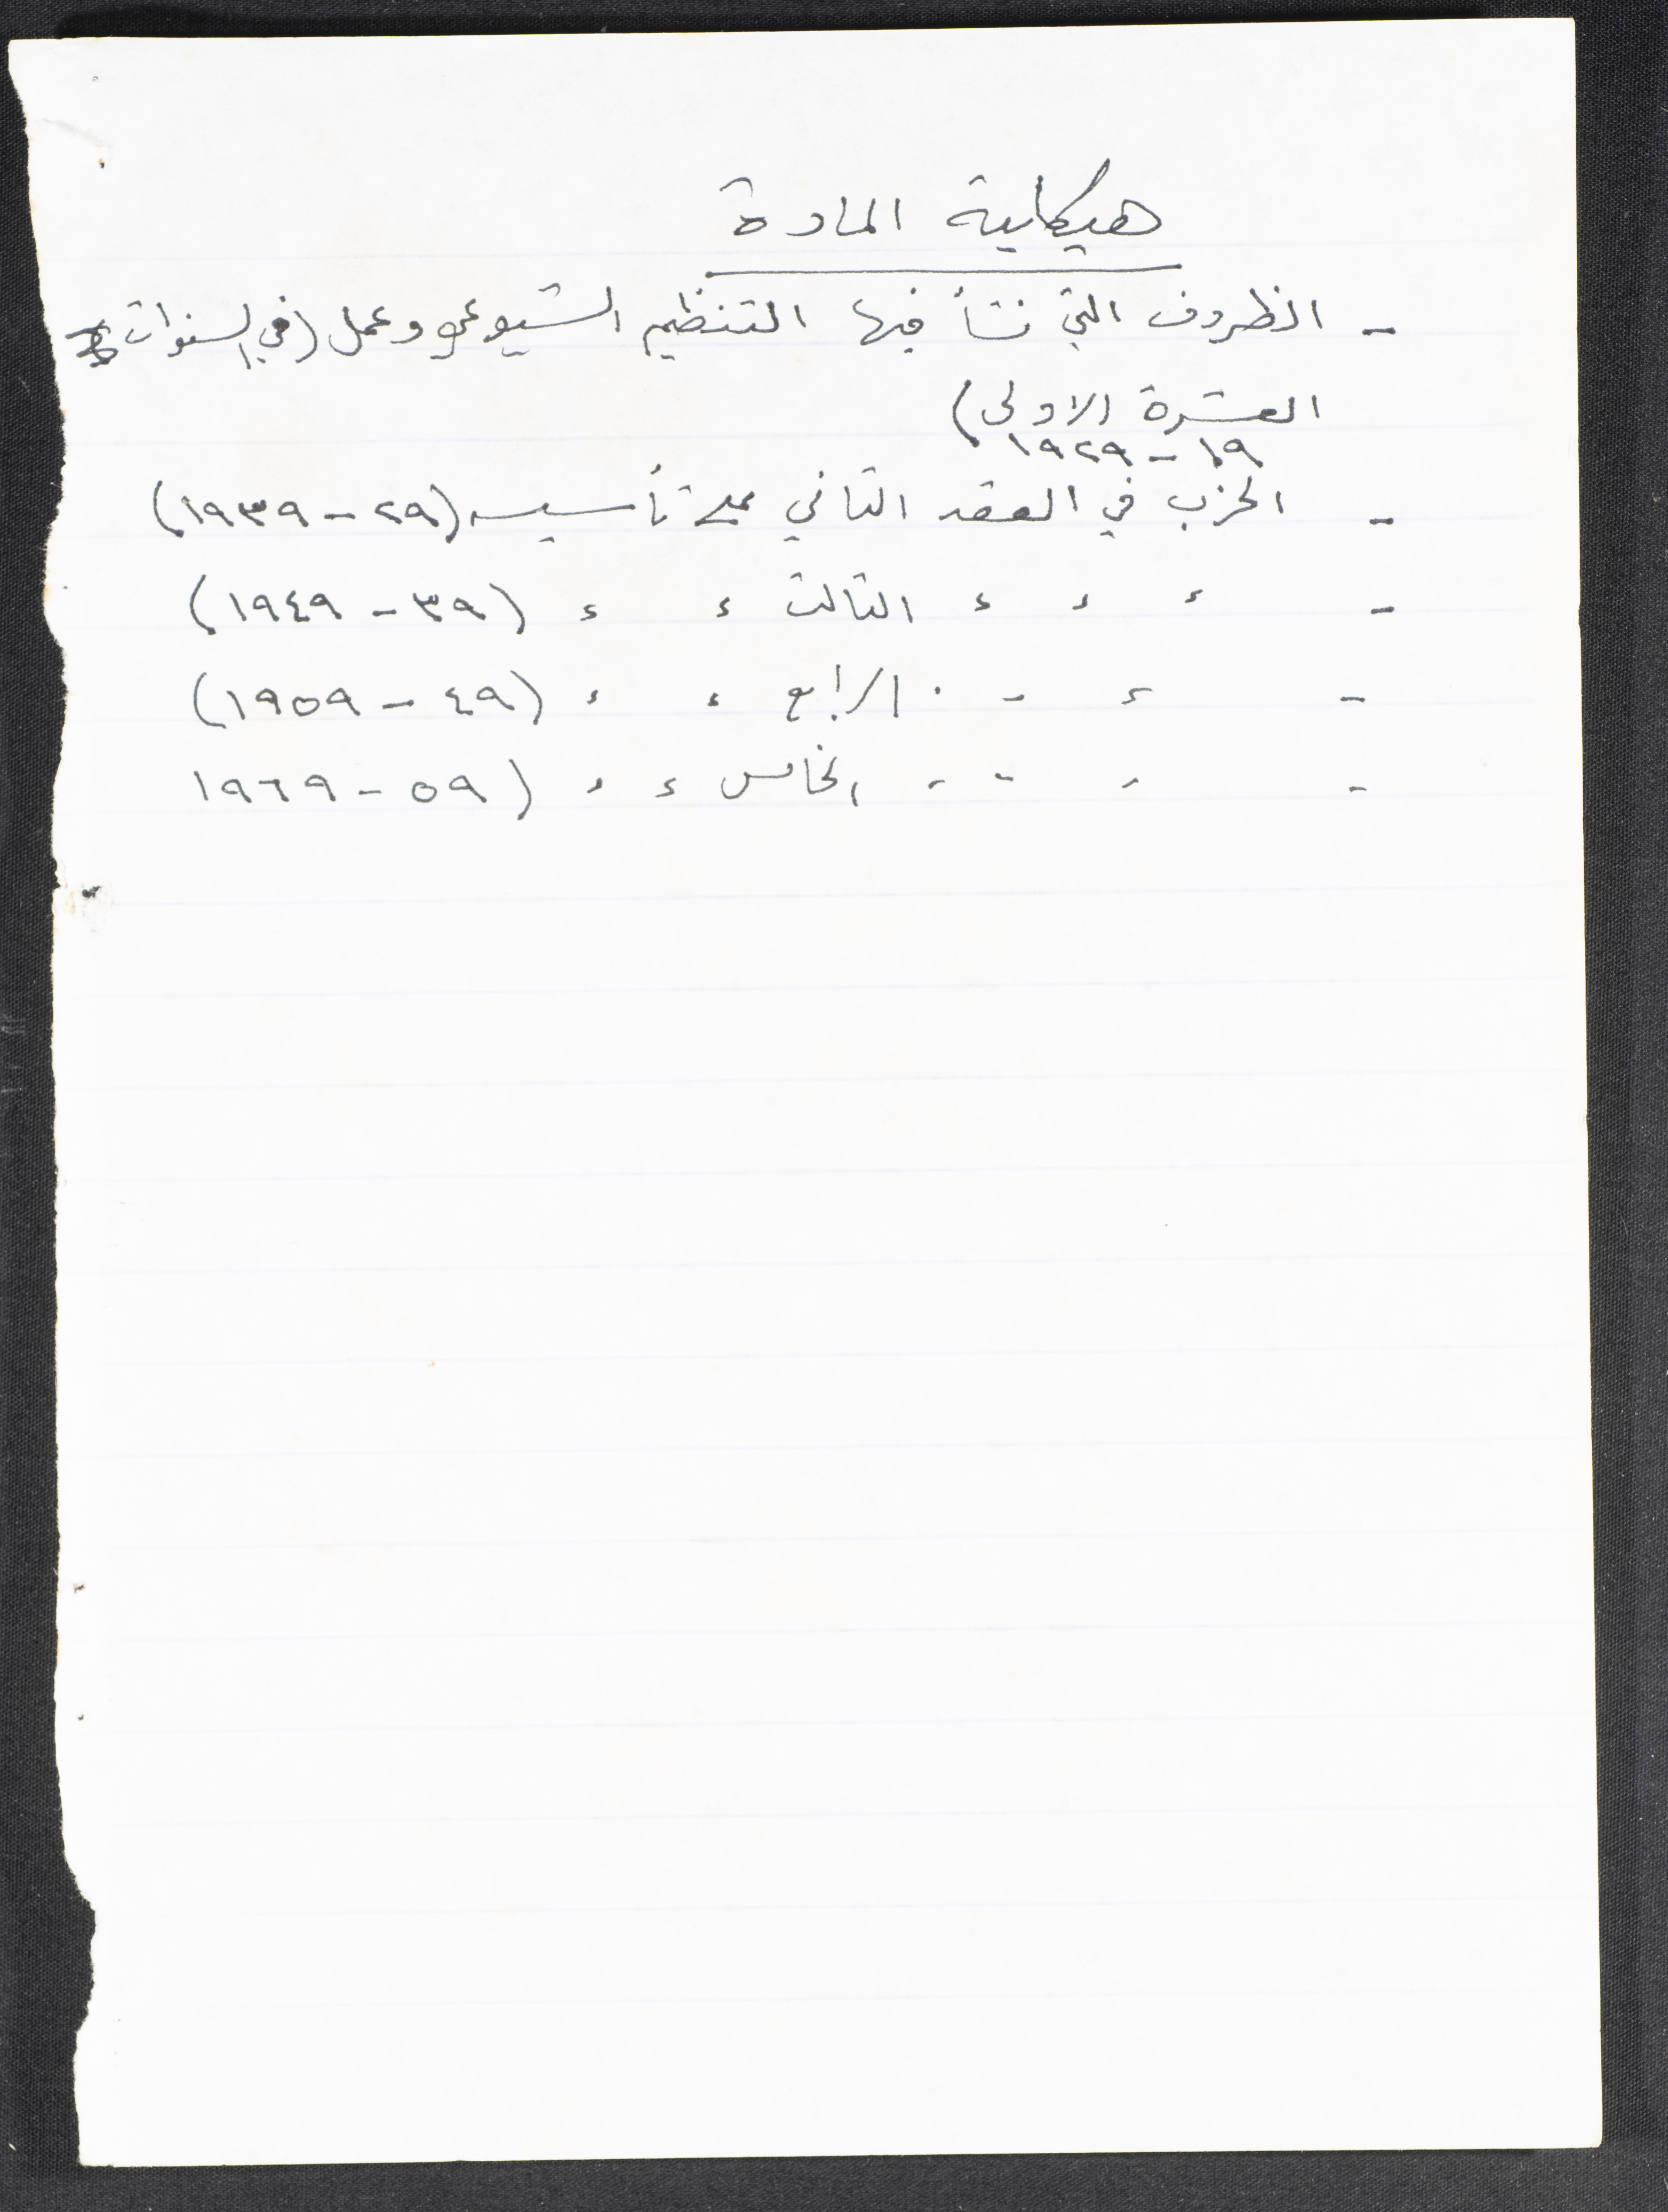 هيكلية المادة
- الظروف التي نشأ فيها التنظيم الشيوعي وعمل (في السنوات
العشرة الاولى)
١٩ - ١٩٢٩)
- الحزب في العقد الثاني على تأسيسه (٢٩ - ١٩٣٩)
- ء ء ء الثالث ء ء (٣٩ - ١٩٤٩)
- ء - . الرابع ء ء (٤٩ - ١٩٥٩)
- ء - ء الخامس ء ء (٥٩ - ١٩٦٩